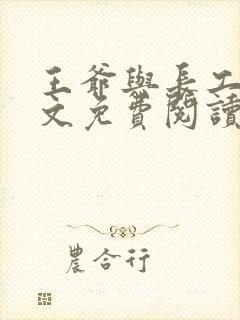 王爺與長工
文免費閱讀
農合行